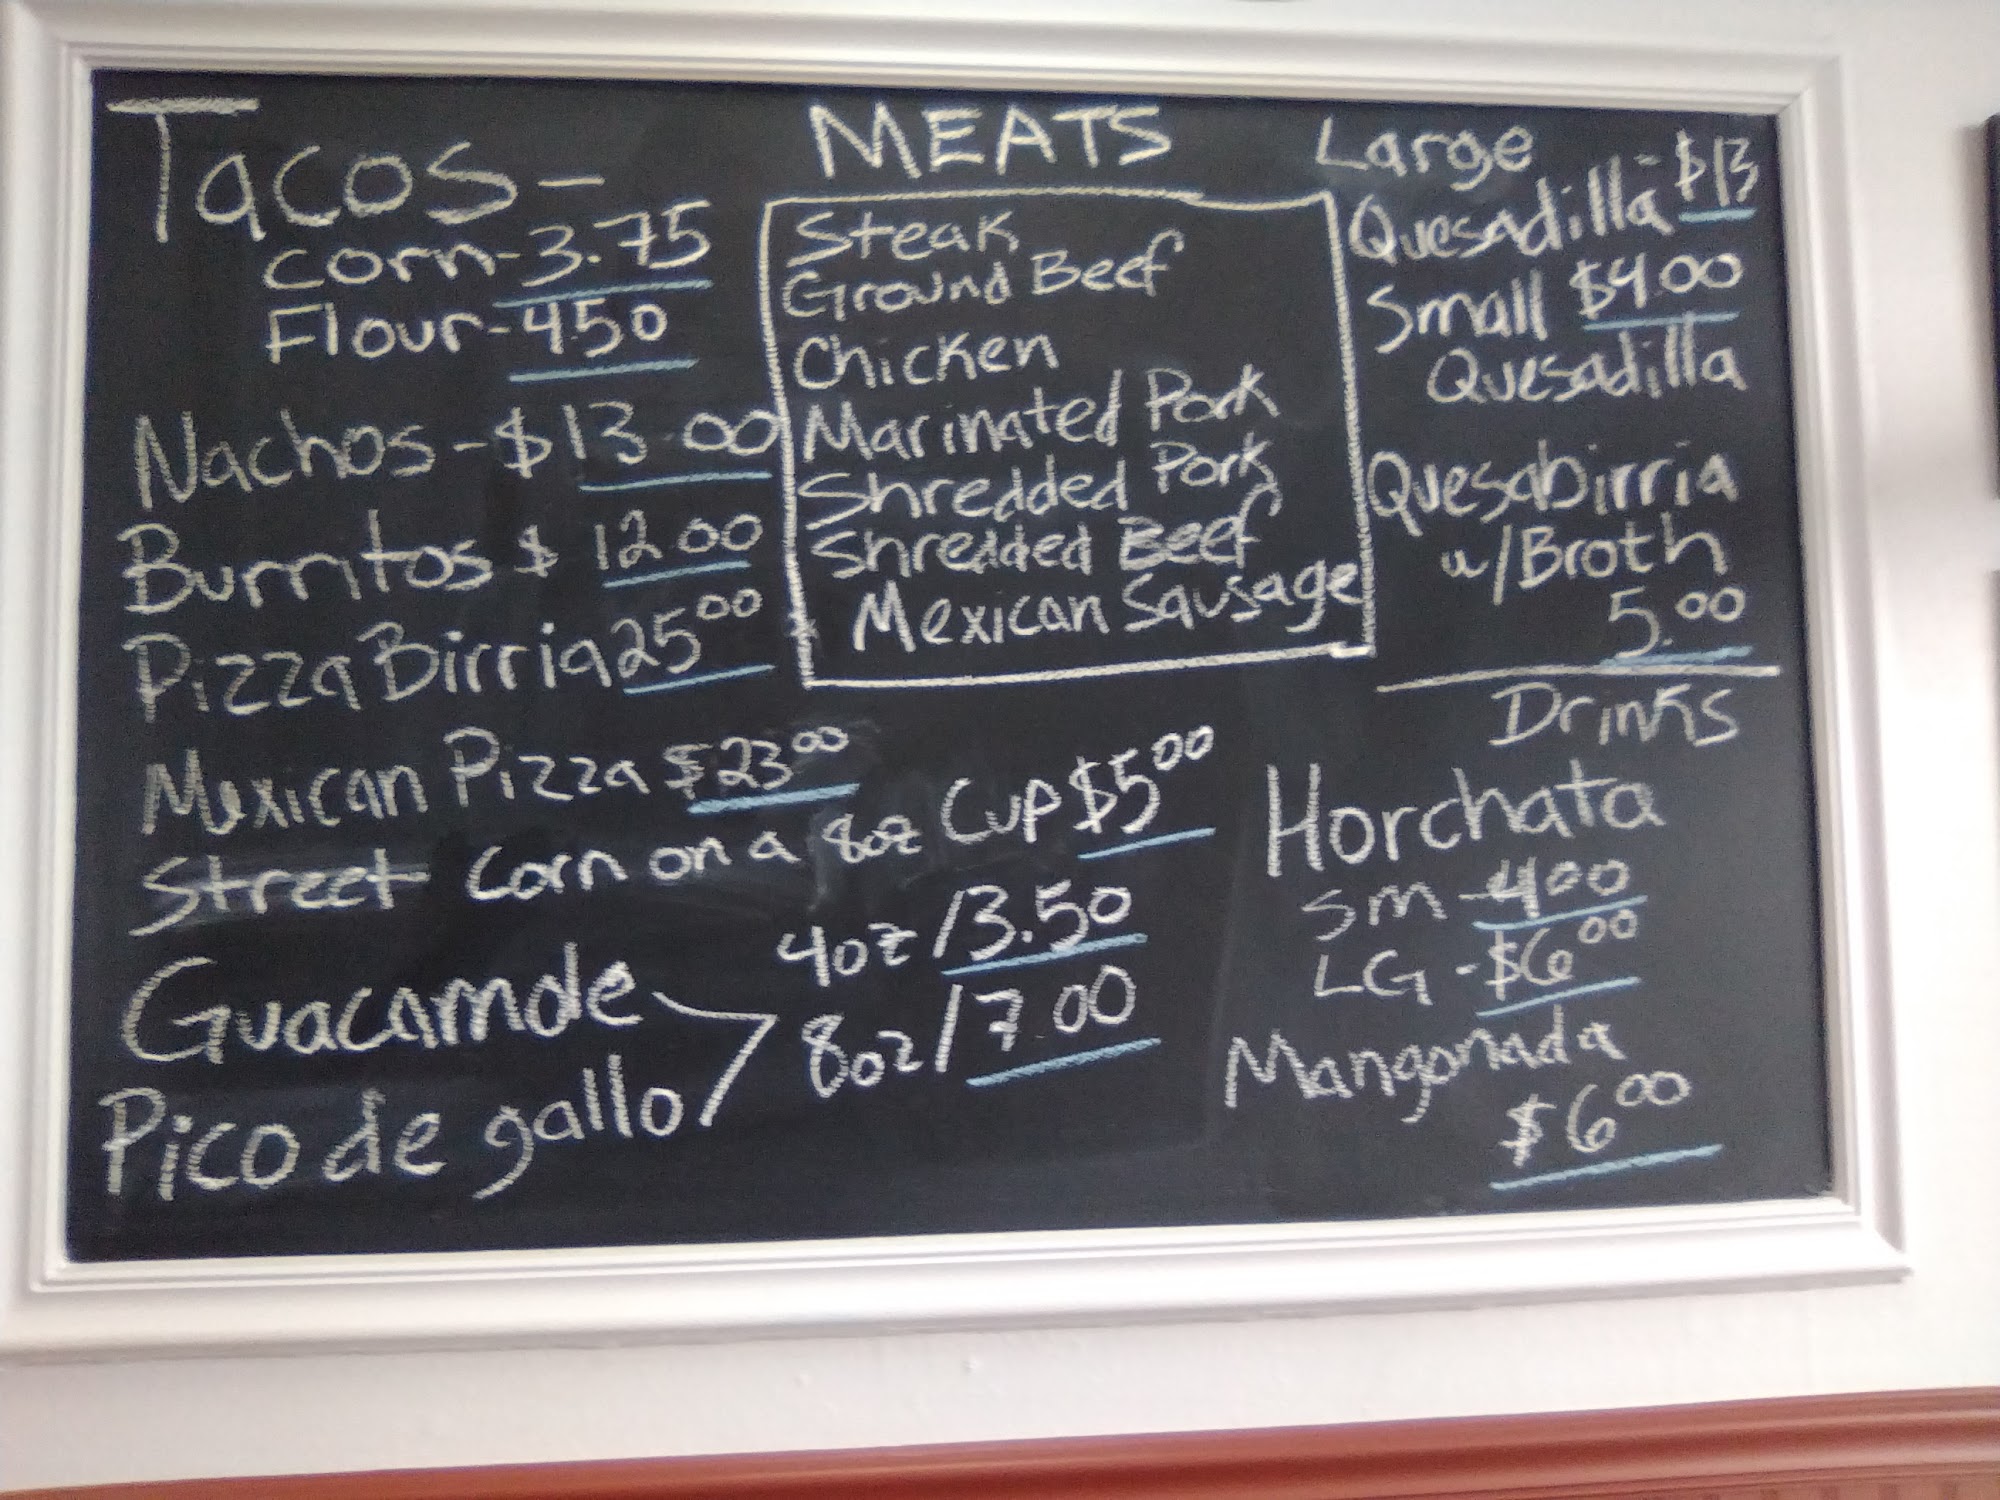 Tacos –
Corn - 3.75
Flour - 4.50
Nachos - $13.00
Burritos $12.00
Pizza Birria 25.00
Mexican Pizza $23.00
Street Corn on a 8oz Cup $5.00
Guacamole
Pico de gallo
4oz / 3.50
8oz / 7.00
MEATS
Steak
Ground Beef
Chicken
Marinated Pork
Shredded Pork
Shredded Beef
Mexican Sausage
Large
Quesadilla - $13
Small $4.00
Quesadilla
Quesabirria
w/Broth
5.00
Drinks
Horchata
Sm - 4.00
LG - $6.00
Mangonada
$6.00